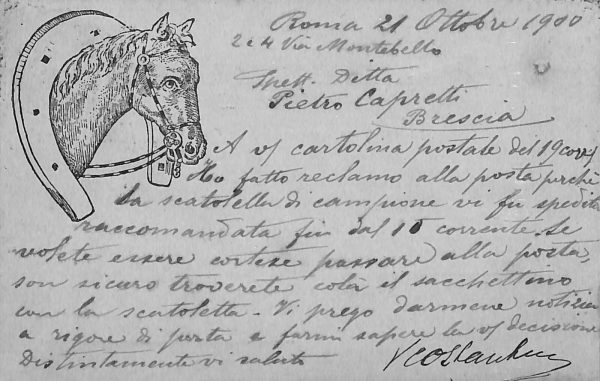 Roma 21 Ottobre 1900
2 e 4 Via Montebello
Spett. Ditta
Pietro Capretti
Brescia
A v/ cartolina postale del 19 corr/
Ho fatto reclamo alla posta perchè
la scatolella di campione vi fu spedita
raccomandata fin dal 15 corrente. Se
volete essere cortese passare alla posta,
son sicuro troverete colà il sacchettino
con la scatoletta. Vi prego darmene notizia
a rigore di posta e farmi sapere la v/ decisione
Distintamente vi saluto